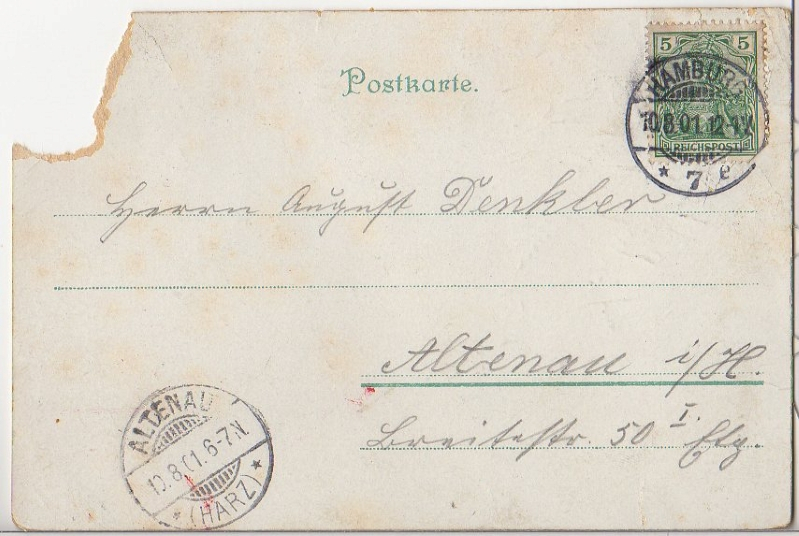 Postkarte.
5 5
HAMBURG
10.8.01.12-1V.
REICHSPOST
* 7 e
Herrn August Denkler
Altenau i/H.
Breitestr. 50 I. Etg.
ALTENAU
10.8.01.6-7N.
* (HARZ) *